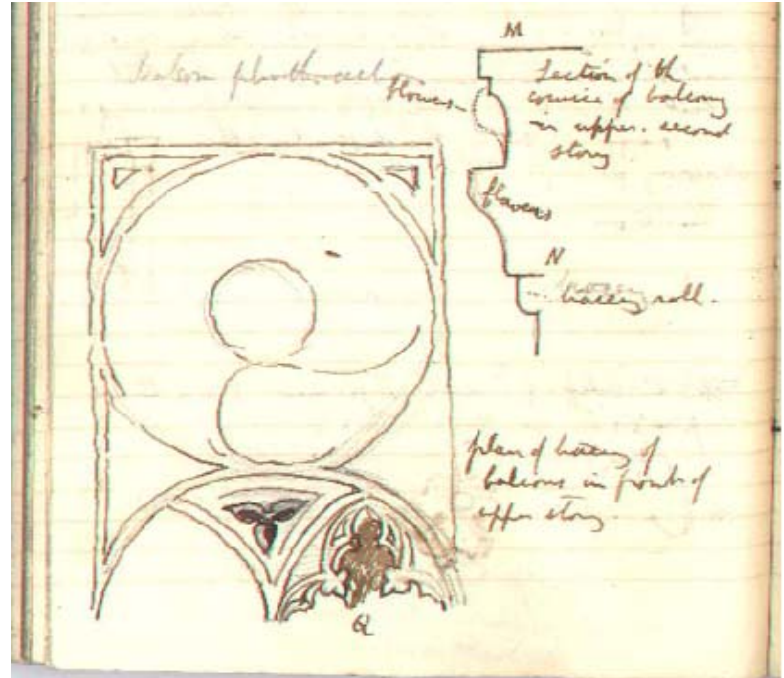 M
flowers
Section of the
cornice of balcony
in upper. second
story
flowers
N
tracery roll.
plan of tracery of
balcons in front of
upper story.
Q